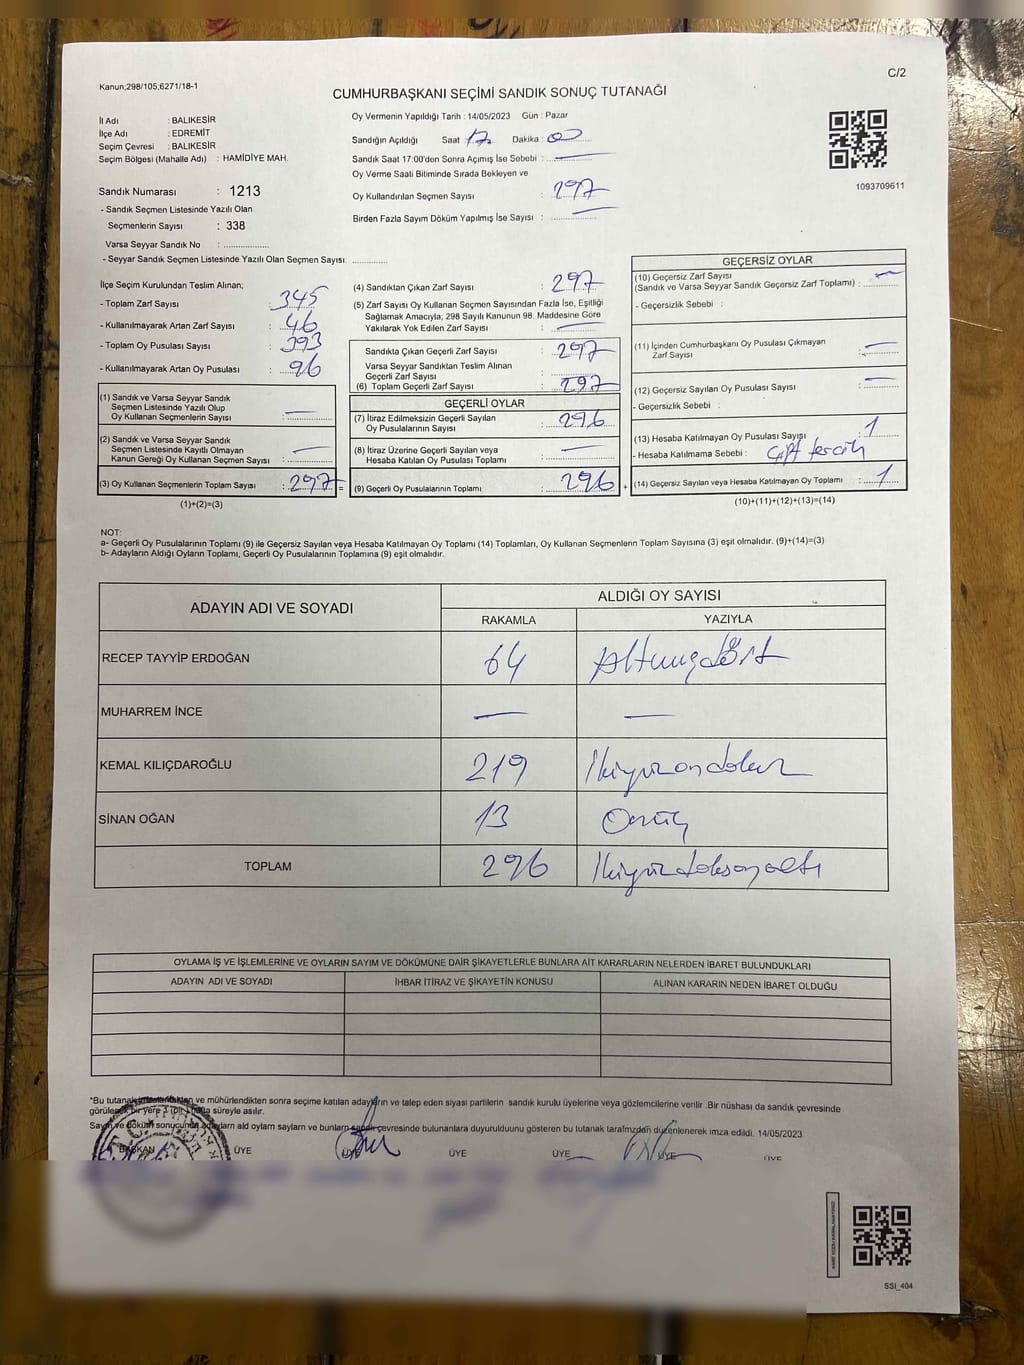 C/2
Kanun;298/105;6271/18-1
CUMHURBAŞKANI SEÇİMİ SANDIK SONUÇ TUTANAĞI
İl Adı : BALIKESİR
İlçe Adı : EDREMİT
Seçim Çevresi : BALIKESİR
Seçim Bölgesi (Mahalle Adı) : HAMİDİYE MAH.
Sandık Numarası : 1213
- Sandık Seçmen Listesinde Yazılı Olan
Seçmenlerin Sayısı : 338
Varsa Seyyar Sandık No : ....................
- Seyyar Sandık Seçmen Listesinde Yazılı Olan Seçmen Sayısı: ...............
Oy Vermenin Yapıldığı Tarih : 14/05/2023 Gün : Pazar
Sandığın Açıldığı Saat : 17 Dakika : 00
Sandık Saat 17:00'den Sonra Açımış İse Sebebi : —
Oy Verme Saati Bitiminde Sırada Bekleyen ve
Oy Kullandırılan Seçmen Sayısı : 297
Birden Fazla Sayım Döküm Yapılmış İse Sayısı : —
1093709611
İlçe Seçim Kurulundan Teslim Alınan;
- Toplam Zarf Sayısı : 345
- Kullanılmayarak Artan Zarf Sayısı : 46
- Toplam Oy Pusulası Sayısı : 393
- Kullanılmayarak Artan Oy Pusulası : 96
(1) Sandık ve Varsa Seyyar Sandık
Seçmen Listesinde Yazılı Olup
Oy Kullanan Seçmenlerin Sayısı : —
(2) Sandık ve Varsa Seyyar Sandık
Seçmen Listesinde Kayıtlı Olmayan
Kanun Gereği Oy Kullanan Seçmen Sayısı : —
(3) Oy Kullanan Seçmenlerin Toplam Sayısı : 297 =
(1)+(2)=(3)
(4) Sandıktan Çıkan Zarf Sayısı : 297
(5) Zarf Sayısı Oy Kullanan Seçmen Sayısından Fazla İse, Eşitliği
Sağlamak Amacıyla; 298 Sayılı Kanunun 98. Maddesine Göre
Yakılarak Yok Edilen Zarf Sayısı : —
Sandıkta Çıkan Geçerli Zarf Sayısı : 297
Varsa Seyyar Sandıktan Teslim Alınan
Geçerli Zarf Sayısı :
(6) Toplam Geçerli Zarf Sayısı : 297
GEÇERLİ OYLAR
(7) İtiraz Edilmeksizin Geçerli Sayılan
Oy Pusulalarının Sayısı : 296
(8) İtiraz Üzerine Geçerli Sayılan veya
Hesaba Katılan Oy Pusulası Toplamı : —
(9) Geçerli Oy Pusulalarının Toplamı : 296 +
GEÇERSİZ OYLAR
(10) Geçersiz Zarf Sayısı
(Sandık ve Varsa Seyyar Sandık Geçersiz Zarf Toplamı) : —
- Geçersizlik Sebebi :
(11) İçinden Cumhurbaşkanı Oy Pusulası Çıkmayan
Zarf Sayısı : —
(12) Geçersiz Sayılan Oy Pusulası Sayısı : —
- Geçersizlik Sebebi :
(13) Hesaba Katılmayan Oy Pusulası Sayısı : 1
- Hesaba Katılmama Sebebi : çift tercih
(14) Geçersiz Sayılan veya Hesaba Katılmayan Oy Toplamı : 1
(10)+(11)+(12)+(13)=(14)
NOT:
a- Geçerli Oy Pusulalarının Toplamı (9) ile Geçersiz Sayılan veya Hesaba Katılmayan Oy Toplamı (14) Toplamları, Oy Kullanan Seçmenlerin Toplam Sayısına (3) eşit olmalıdır. (9)+(14)=(3)
b- Adayların Aldığı Oyların Toplamı, Geçerli Oy Pusulalarının Toplamına (9) eşit olmalıdır.
ADAYIN ADI VE SOYADI ALDIĞI OY SAYISI
RAKAMLA YAZIYLA
RECEP TAYYİP ERDOĞAN 64 Altmışdört
MUHARREM İNCE — —
KEMAL KILIÇDAROĞLU 219 İkiyüzondokuz
SİNAN OĞAN 13 Onüç
TOPLAM 296 İkiyüzdoksanaltı
OYLAMA İŞ VE İŞLEMLERİNE VE OYLARIN SAYIM VE DÖKÜMÜNE DAİR ŞİKAYETLERLE BUNLARA AİT KARARLARIN NELERDEN İBARET BULUNDUKLARI
ADAYIN ADI VE SOYADI İHBAR İTİRAZ VE ŞİKAYETİN KONUSU ALINAN KARARIN NEDEN İBARET OLDUĞU
*Bu tutanak ve mühürlendikten sonra seçime katılan adayların ve talep eden siyasi partilerin sandık kurulu üyelerine veya gözlemcilerine verilir .Bir nüshası da sandık çevresinde
görülecek bir yere süreyle asılır.
Sayım ve döküm sonucunun adayların ald oylam sayların ve bunların sandık çevresinde bulunanlara duyurulduunu gösteren bu tutanak tarafmzdan düzenlenerek imza edildi. 14/05/2023
BAŞKAN ÜYE ÜYE ÜYE ÜYE ÜYE ÜYE
SSI_404